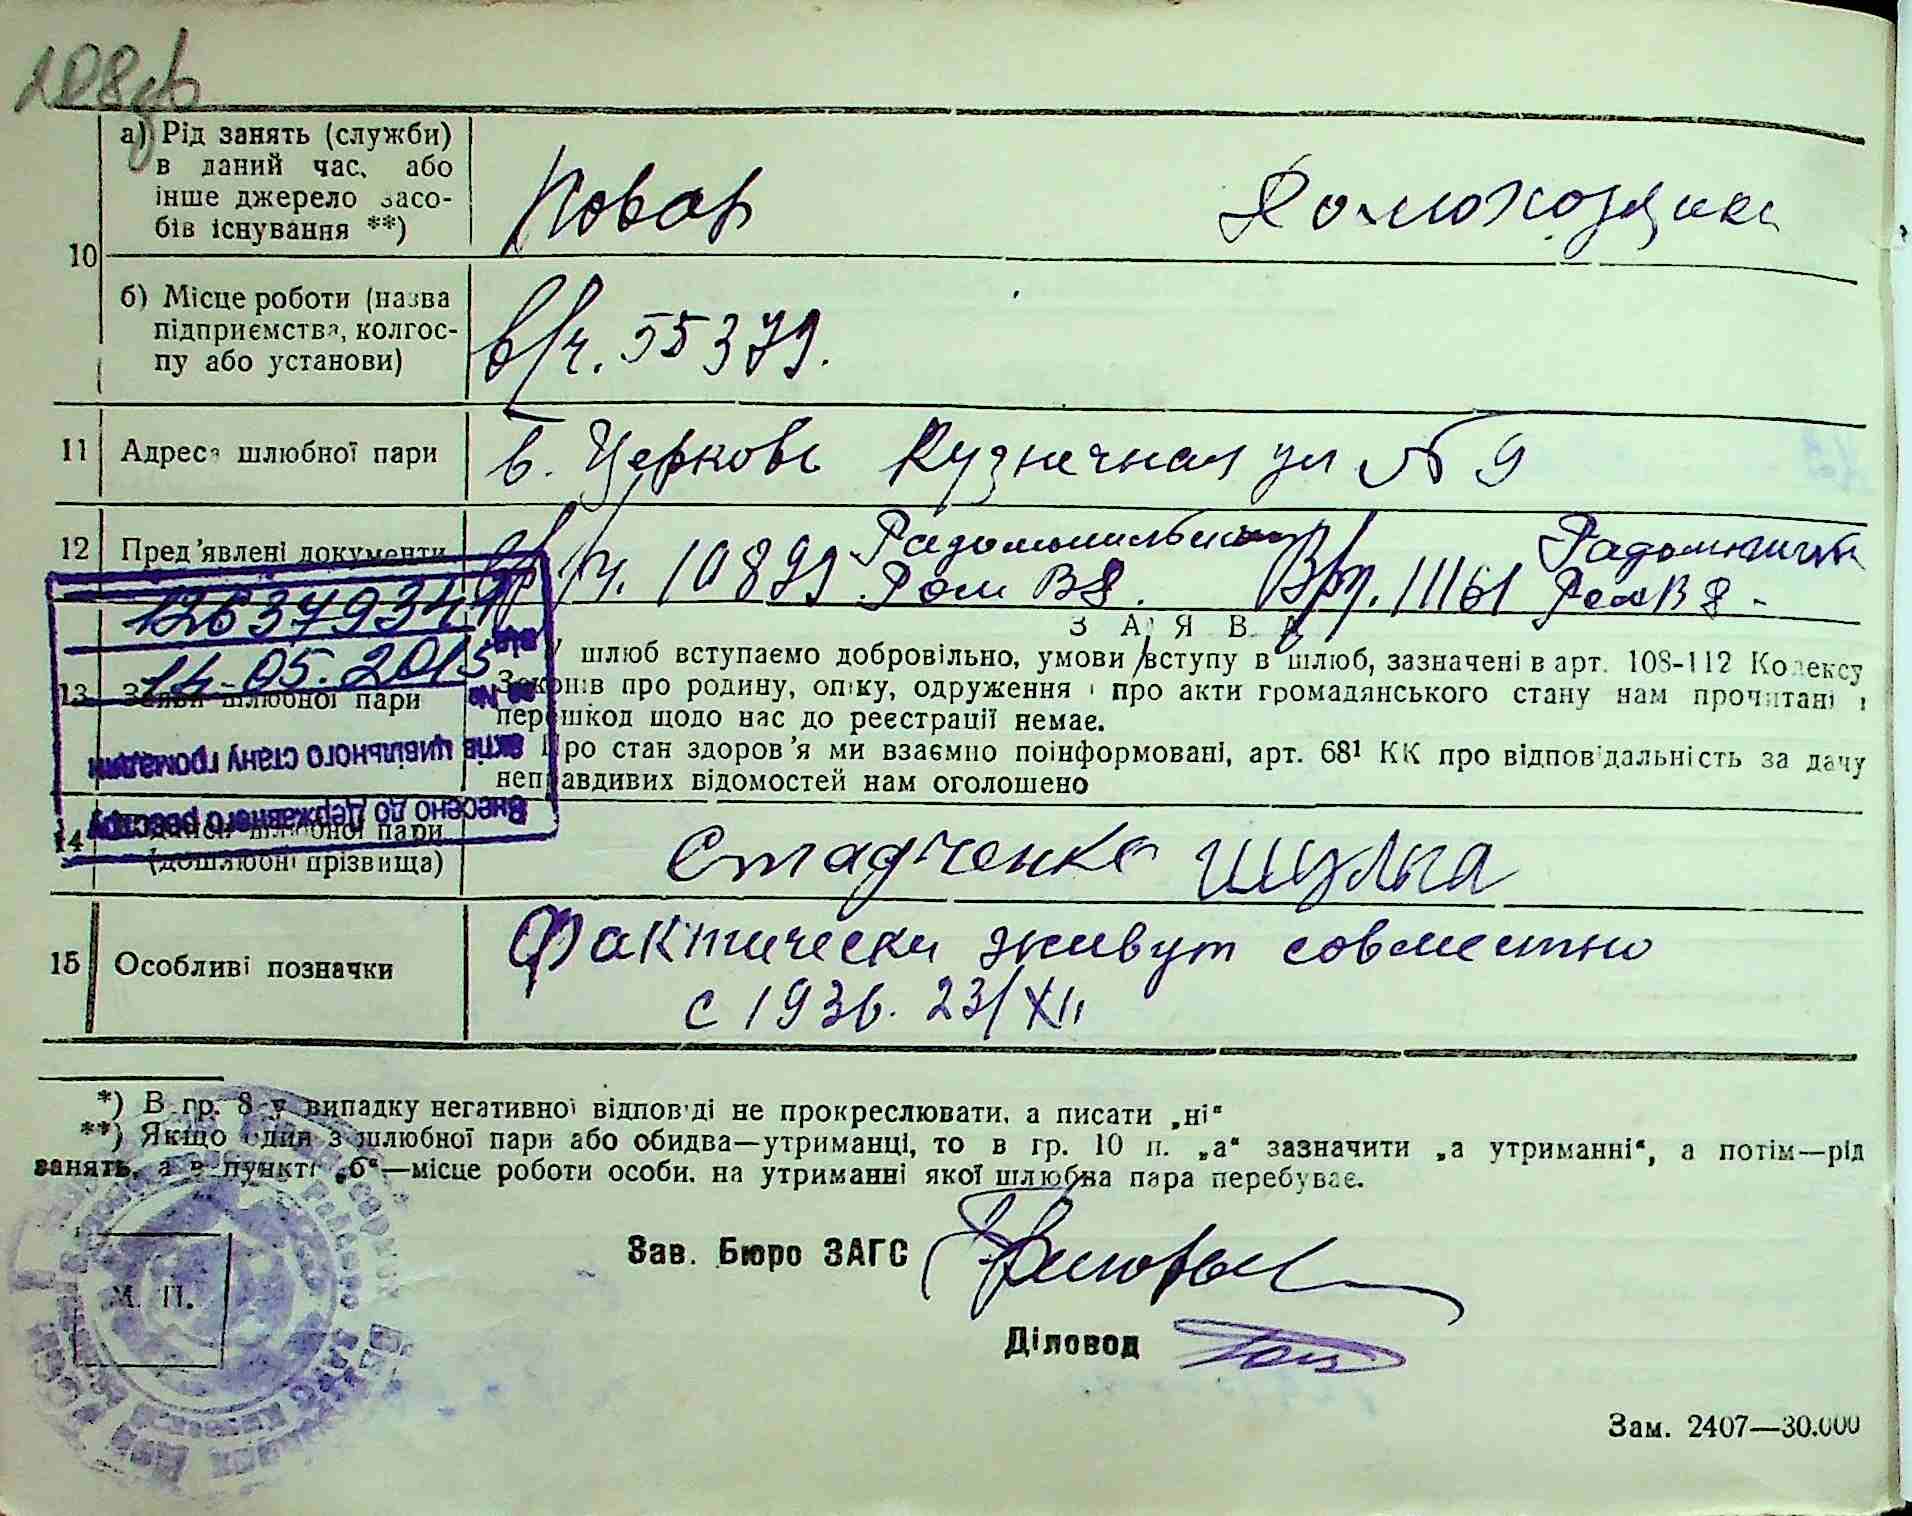 208зв
10
а) Рід занять (служби)
в даний час, або
інше джерело засо-
бів існування **)
Повар
Домохозяик
б) Місце роботи (назва
підприємства, колгос-
пу або установи)
в/ч. 55379.
11 Адреса шлюбної пари
б. Церковь Кузнечная ул № 9
12 Пред'явлені документи
вр/ч. 10899 Радомышльским
Ром В8.
Вр/ч. 11161 Радомышльск
РомВ8.
1263793447
14-05.2015
від
за №
актів цивільного стану громадян
Внесено до Державного реєстру
ЗАЯВА
13 Заяви шлюбної пари
У шлюб вступаємо добровільно, умови вступу в шлюб, зазначені в арт. 108-112 Кодексу
Законів про родину, опіку, одруження і про акти громадянського стану нам прочитані і
перешкод щодо нас до реєстрації немає.
Про стан здоров'я ми взаємно поінформовані, арт. 68¹ КК про відповідальність за дачу
неправдивих відомостей нам оголошено
14 шлюбної пари
(дошлюбні прізвища)
Стадченко Шульга
15 Особливі позначки
Фактически живут совместно
с 1936. 23/XII
*) В гр. 8-у випадку негативної відповіді не прокреслювати, а писати „ні“
**) Якщо один з шлюбної пари або обидва—утриманці, то в гр. 10 п. „а“ зазначити „а утриманні“, а потім—рід
занять, а в пункті „б“—місце роботи особи, на утриманні якої шлюбна пара перебуває.
М. П.
Зав. Бюро ЗАГС
Діловод
Зам. 2407—30.000